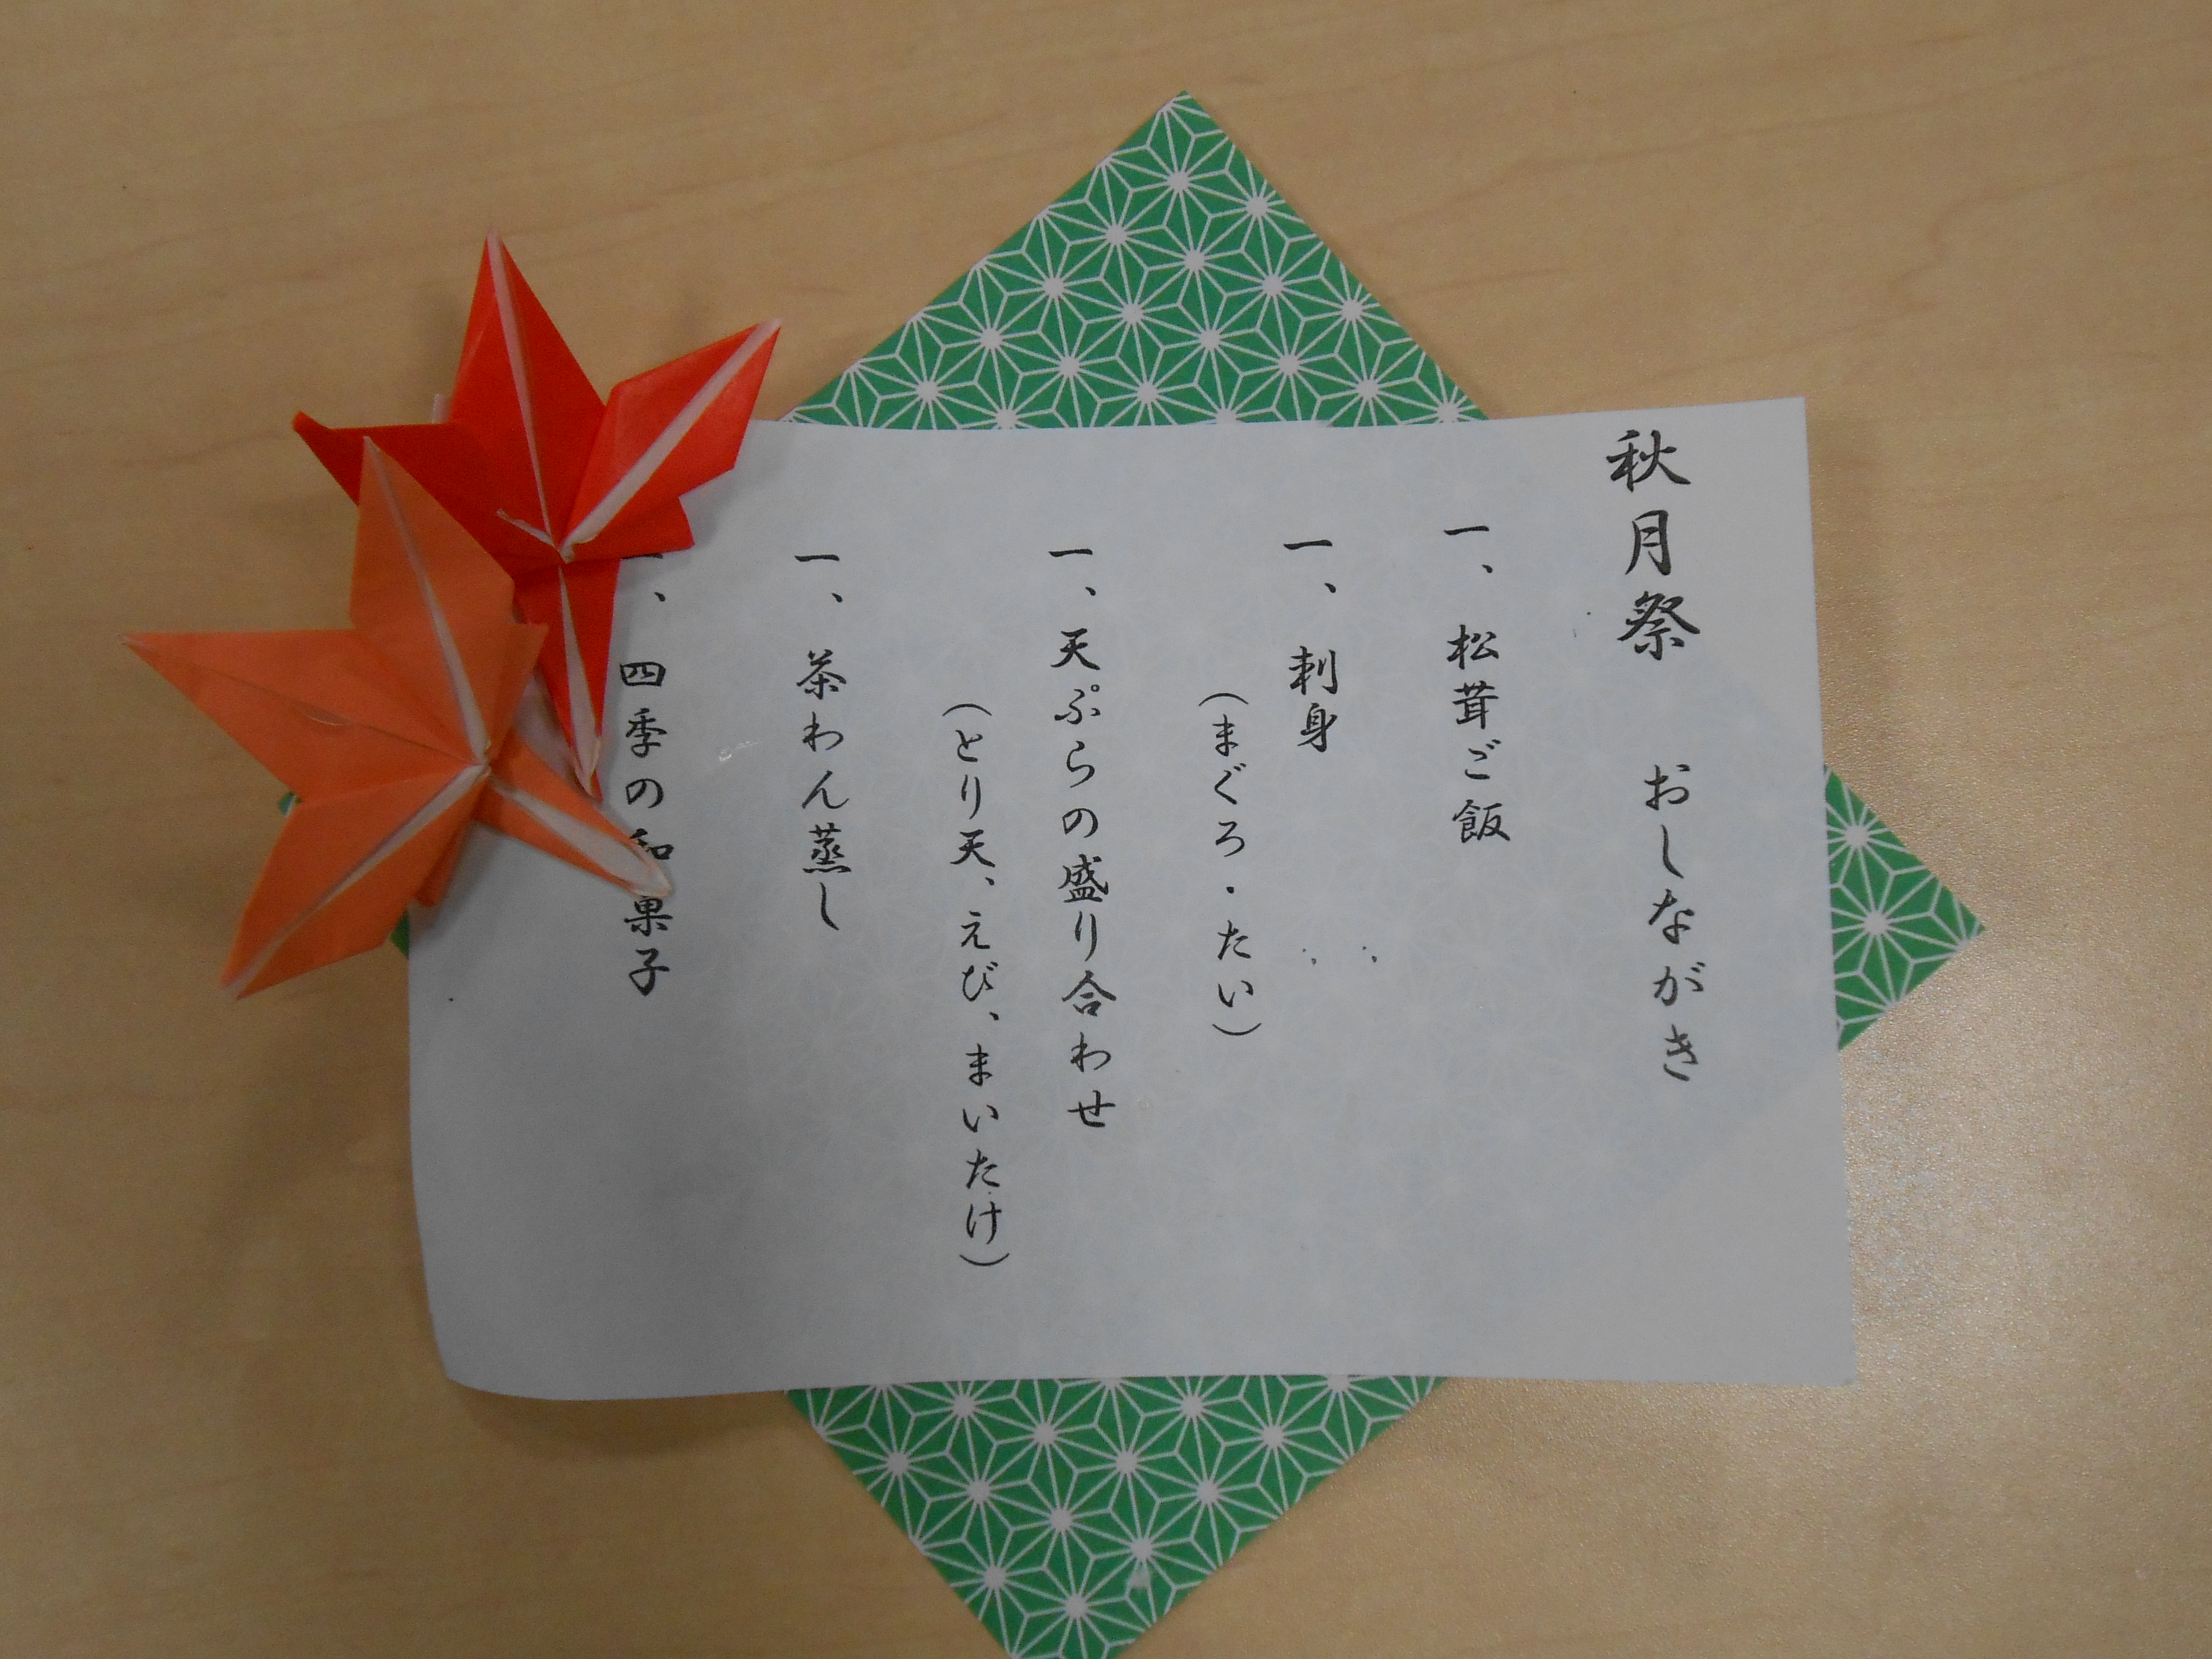 秋月祭　おしながき
一、松茸ご飯
一、刺身
（まぐろ・たい）
一、天ぷらの盛り合わせ
（とり天、えび、まいたけ）
一、茶わん蒸し
一、四季の和菓子